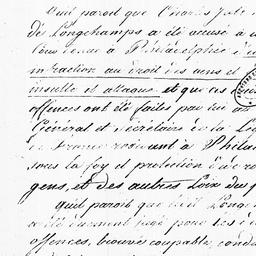 Quil paroit que Charles Jul
de Longchamps a été accusé à u
Cour tenue à Philadelphie d'u
infraction au droit des gens et
insulte et attaque et que ces
offences ont été faits par lui au
Général et Secrétaire de la Lég
de France residant à Philad
sous la foy et protection de
gens, et des autres Loix du
quil paroit que le dit Longc
a été dument jugé pour les d
offences, trouvé coupable, cond